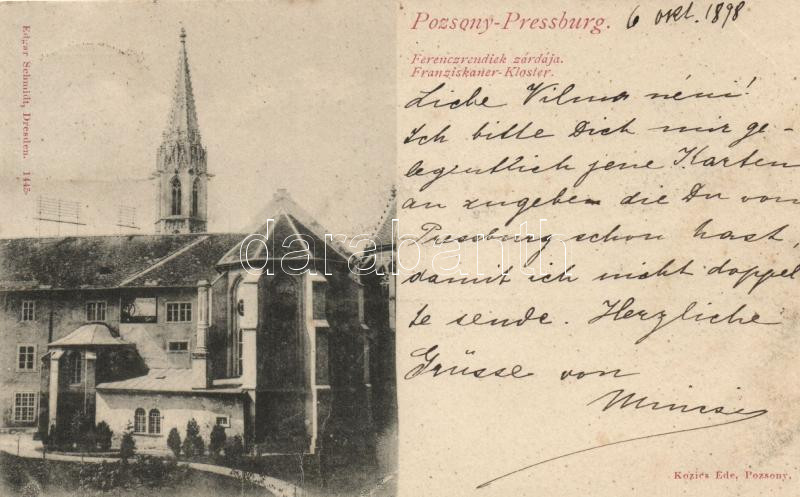 Pozsony-Pressburg.
6 okt. 1898
Ferenczrendiek zárdája.
Franziskaner-Kloster.
Edgar Schmidt, Dresden. 1445.
Liebe Vilma néni!
Ich bitte Dich mir ge-
legentlich jene Karten
anzugeben die Du von
Pressburg schon hast,
damit ich nicht doppel
te sende. Herzliche
Grüsse von
darabanth
Kozics Ede, Pozsony.